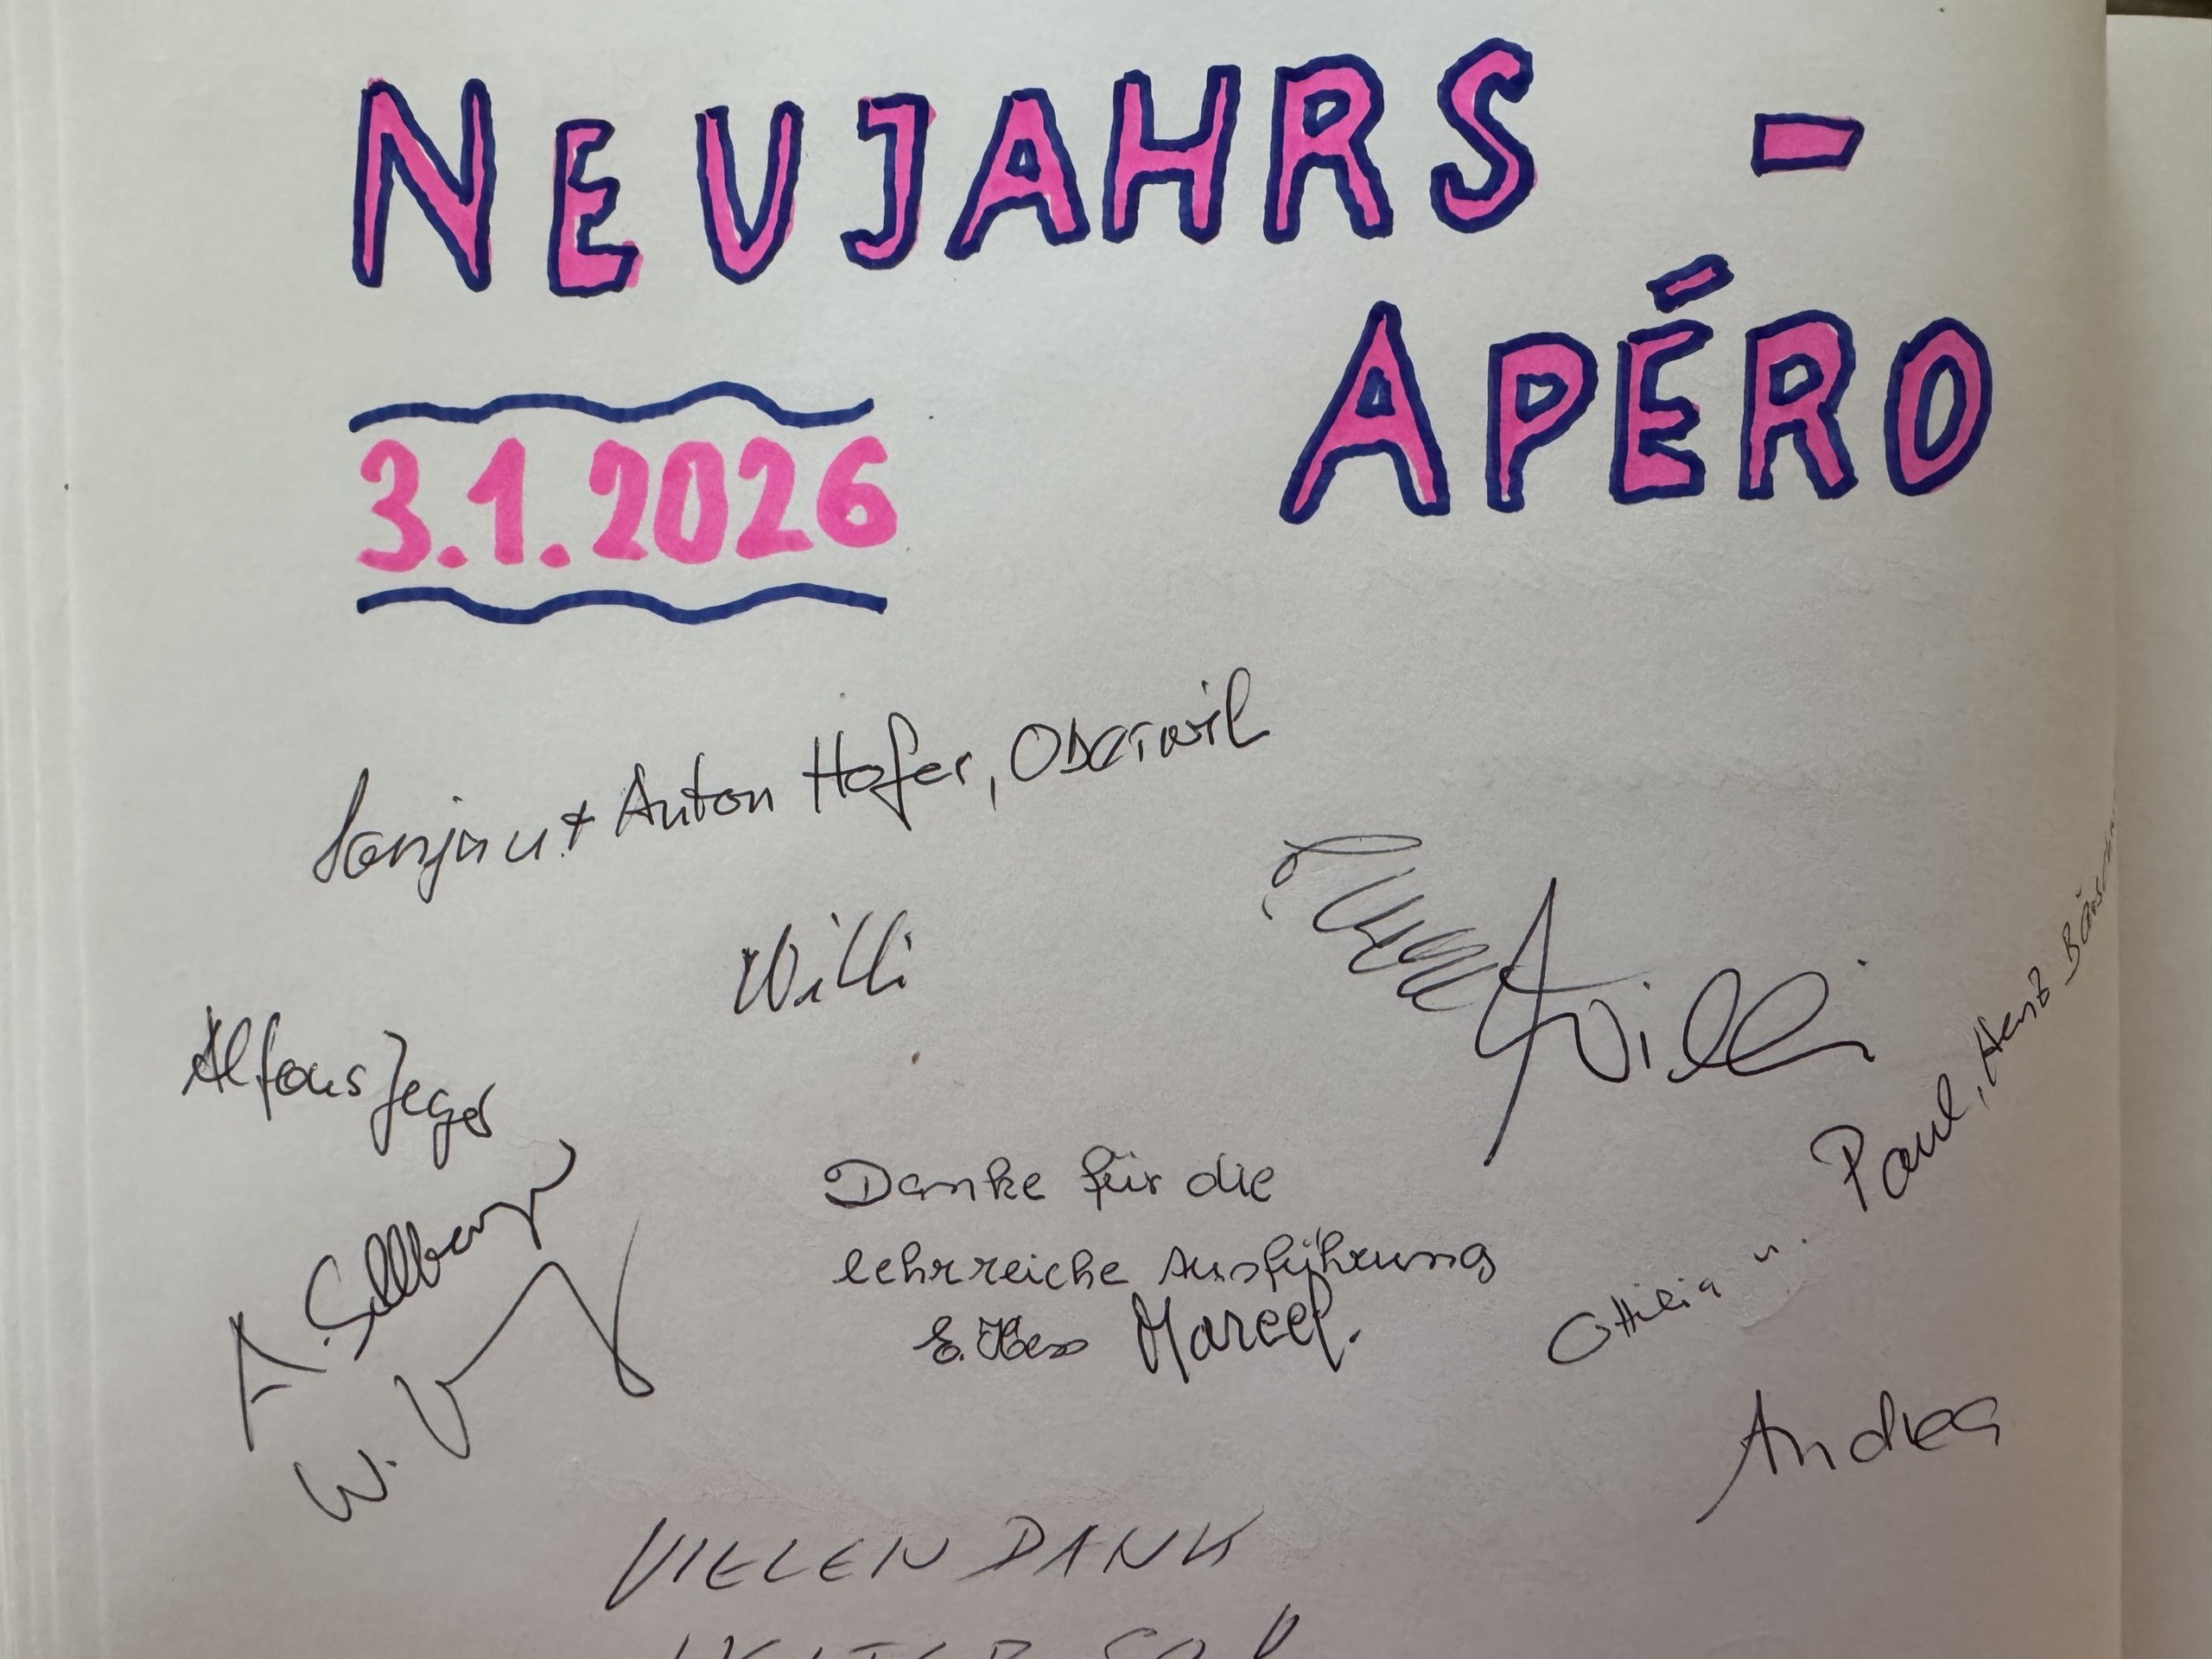 NEUJAHRS -
APÉRO
3.1.2026
Sonja u + Anton Hofer, Oberwil
Willi
Willi
Alfons Jeger
Paul,
Danke für die
lehrreiche Ausführung
E. Hess Marcel.
Ottilia u.
A.
W.
Andrea
VIELEN DANK